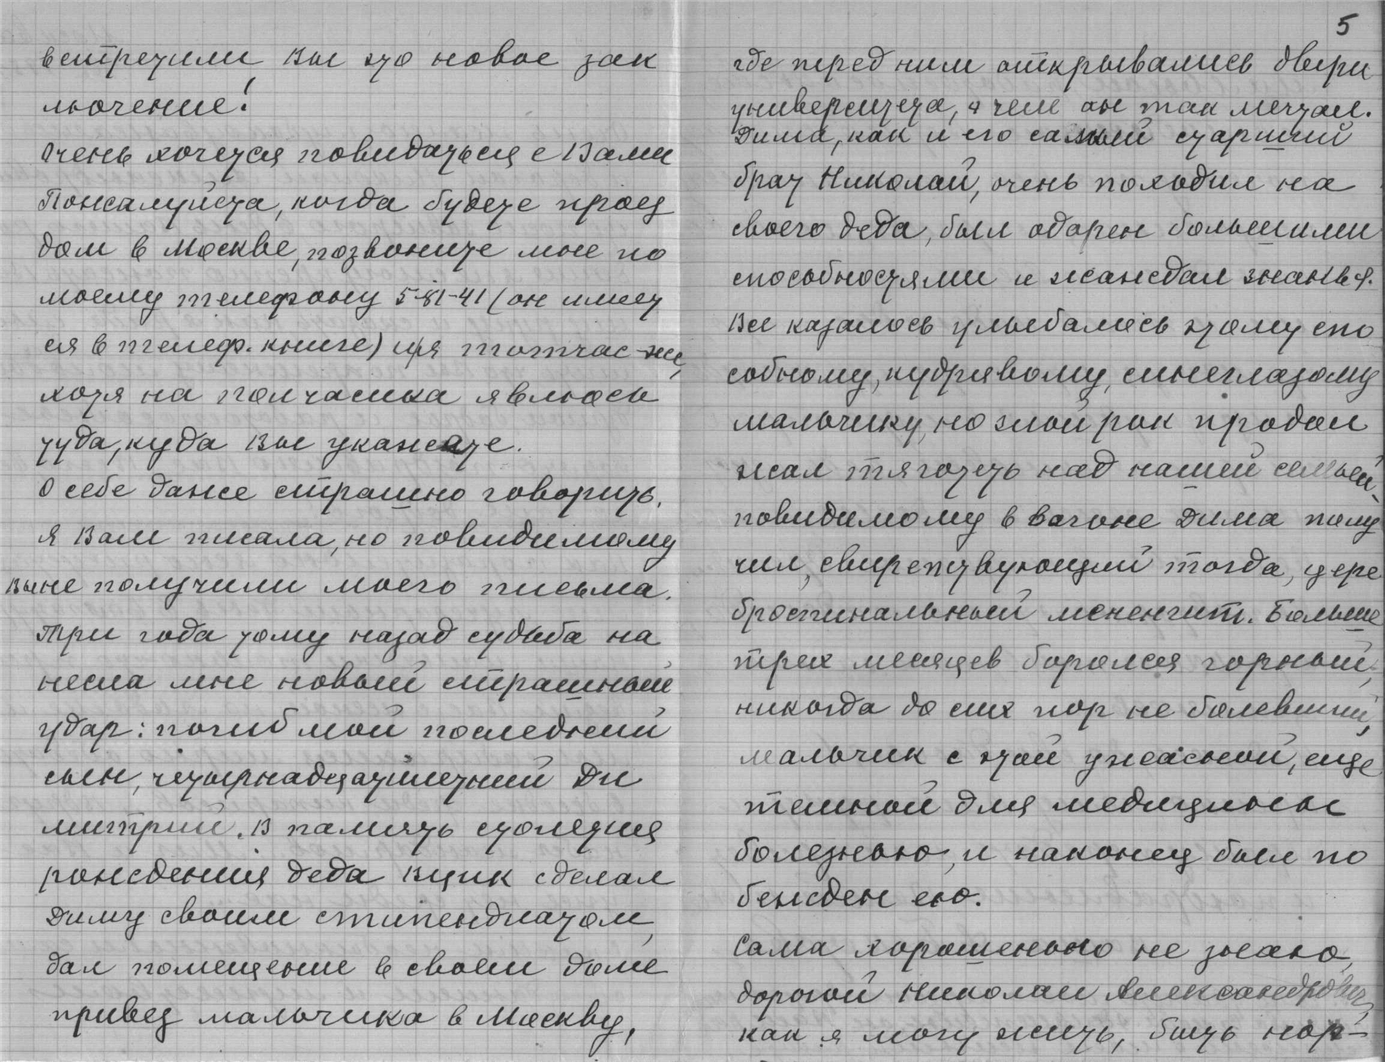 встретили Вы это новое зак
лючение!
Очень хочется повидаться с Вами
Пожалуйста, когда будете проез
дом в Москве, позвоните мне по
моему телефону 5-81-41 (он имеет
ся в телеф. книге) и я тотчас-же,
хотя на полчасика явлюсь
туда, куда Вы укажете.
О себе даже страшно говорить.
Я Вам писала, но повидимому
Вы не получили моего письма.
Три года тому назад судьба на
несла мне новый страшный
удар: погиб мой последний
сын, четырнадцатилетний Ди
митрий. В память столетия
рождения деда ВЦИК сделал
Диму своим стипендиатом,
дал помещение в своем доме
привез мальчика в Москву,
5
где перед ним открывались двери
университета, о чем он так мечтал.
Дима, как и его самый старший
брат Николай, очень походил на
своего деда, был одарен большими
способностями и жаждал знанья.
Все казалось улыбалось этому спо
собному, кудрявому, синеглазому
мальчику, но злой рок продол
жал тяготеть над нашей семьей,
повидимому в вагоне Дима полу
чил, свирепствующий тогда, цере
броспинальный менингит. Больше
трех месяцев боролся гордый,
никогда до сих пор не болевший,
мальчик с этой ужасной, еще
темной для медицины
болезнью, и наконец был по
бежден ею.
Сама хорошенько не знаю,
дорогой Николай Александрович,
как я могу жить, быть нор-